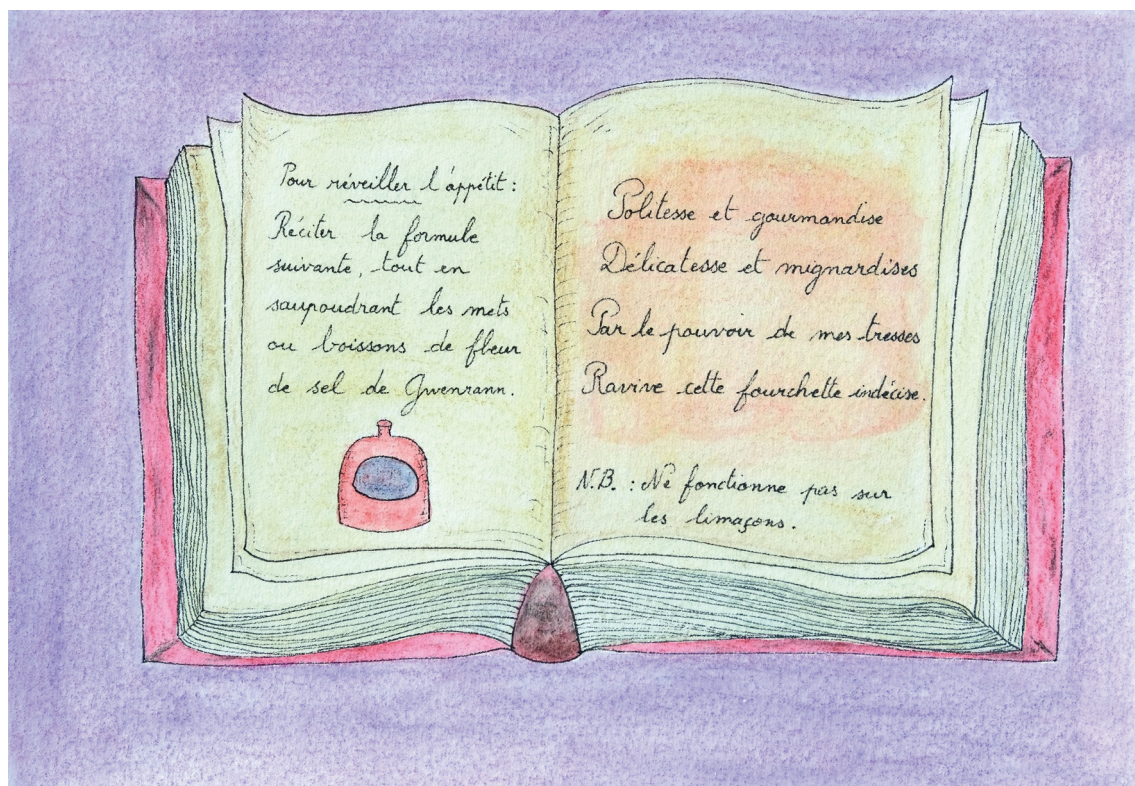 Pour réveiller l'appétit :
Réciter la formule
suivante, tout en
saupoudrant les mets
ou boissons de fleur
de sel de Gwenrann.
Politesse et gourmandise
Délicatesse et mignardises
Par le pouvoir de mes tresses
Ravive cette fourchette indécise.
N.B. : Ne fonctionne pas sur
les limaçons.